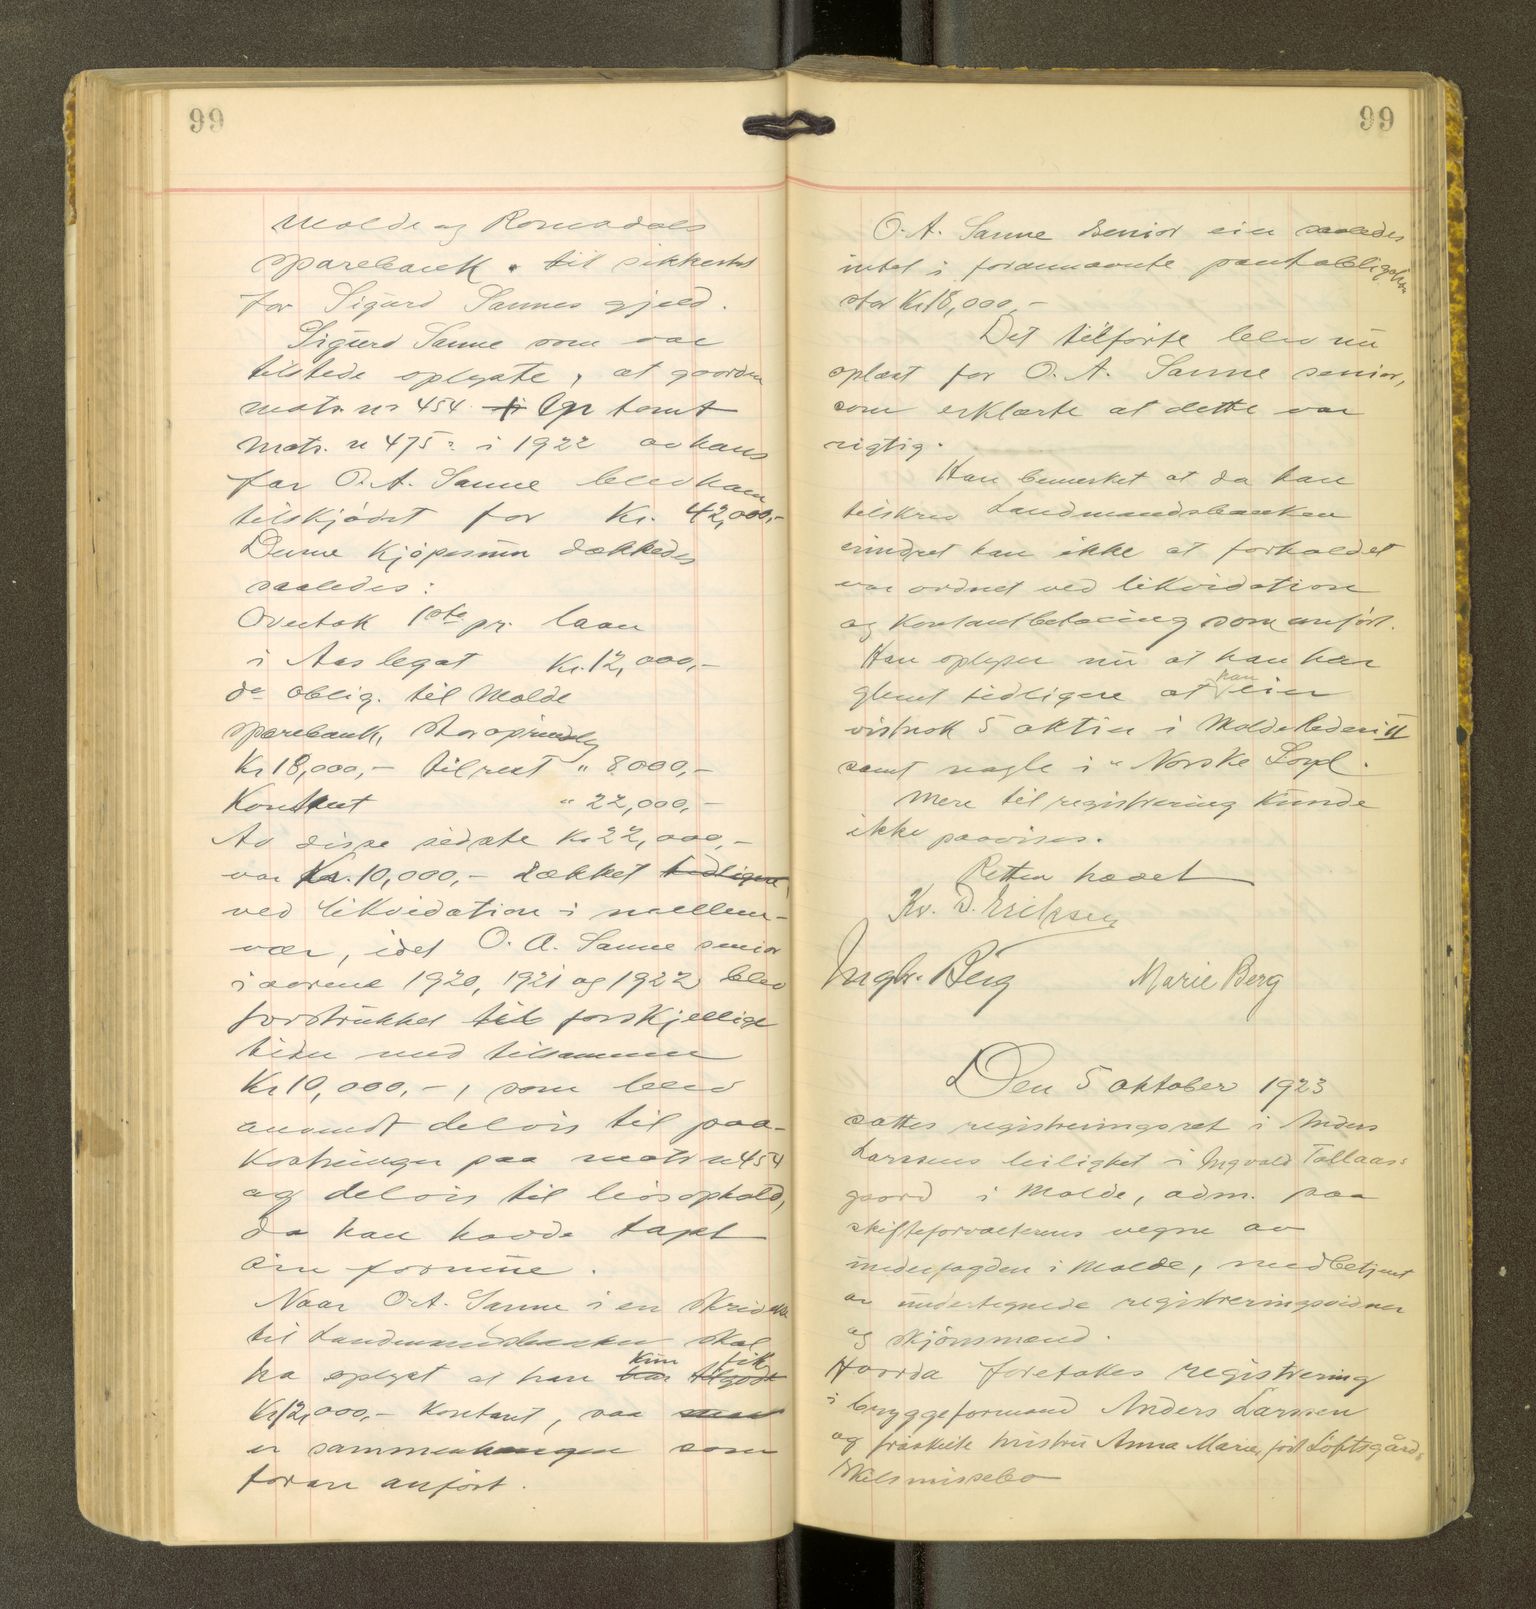 99
Molde og Romsdals
sparebank. til sikkerhet
for Sigurd Sannes gjeld.
Sigurd Sanne som var
tilstede oplyste, at gaarden
matr. nr 454 og tomt
matr. n 475 i 1922 av hans
far O. A. Sanne blev ham
tilskjødet for Kr. 42,000,-
Denne kjøpesum dækkedes
saaledes:
Overtok 1ste pr. laan
i Aas legat Kr. 12,000,-
do oblig. til Molde
sparebank, stor oprindelig
Kr 18,000,- til rest " 8000,-
Kontant " 22,000,-
Av disse sidste Kr 22,000,-
var Kr. 10,000,- dækket tidligere
ved likvidation i mellem-
vær, idet O. A. Sanne senior
i aarene 1920, 1921 og 1922 blev
forstrukket til forskjellige
tider med tilsammen
Kr 10,000,-, som blev
anvendt delvis til paa-
kostninger paa matr n 454
og delvis til livsophold,
da han havde tapt
sin formue.
Naar O. A. Sanne i en skrivelse
til Landmandsbanken skal
kun fik
ha oplyst at han har tilgode
Kr 12,000,- kontant, saa
er sammenhengen som
foran anført.
99
O. A. Sanne senior eier saaledes
intet i forannævnte pantobligation
stor Kr 18,000,-
Det tilførte blev nu
oplæst for O. A. Sanne senior,
som erklærte at dette var
rigtig.
Han bemerket at da han
tilskrev Landmandsbanken
erindret han ikke at forholdet
var ordnet ved likvidation
og kontantbetaling som anført.
Han oplyser nu at han har
han
glemt tidligere at eier
vistnok 5 aktier i Molde Rederi II
samt nogle i "Norske Loyd".
Mere til registrering kunde
ikke paavises.
Retten hævet
Kr. D. Eriksen
Ingbr. Berg Marie Berg
Den 5 oktober 1923
sattes registreringsret i Anders
Larssens leilighet i Ingvald Tollaas-
gaard i Molde, adm. paa
skifteforvalterens vegne av
underfogden i Molde, med betjent
av undertegnede registreringsvidner
og skjønsmænd.
Hvorda foretokes registrering
i bryggeformand Anders Larssen
og fraskilte hustru Anna Marie, født Løftsgård,
skilsmissebo